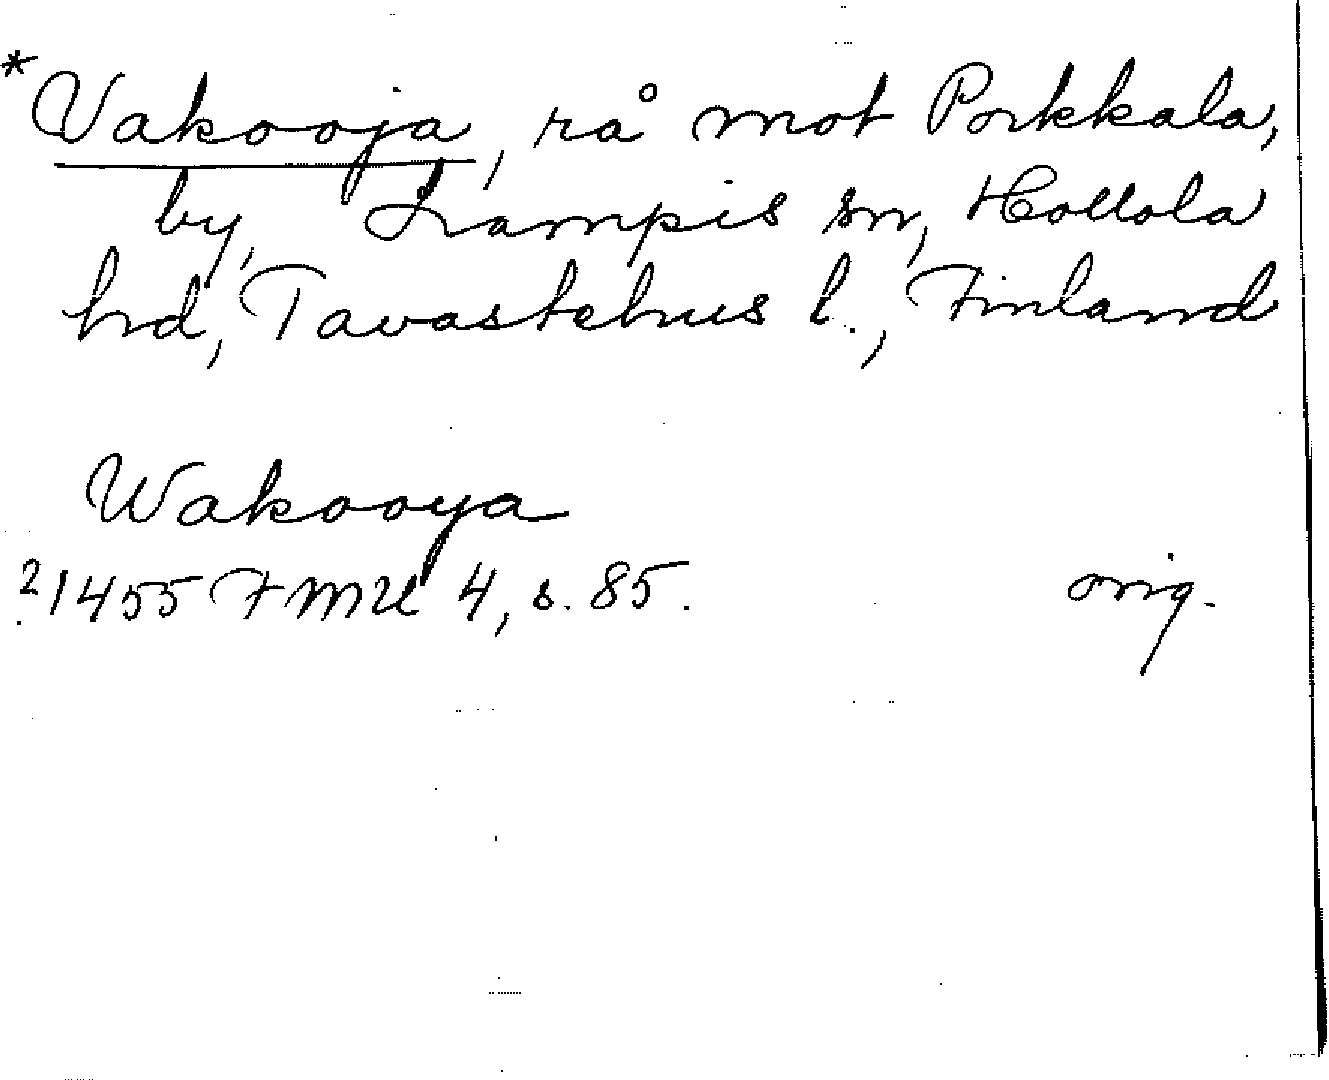 *Vakooja, rå mot Porkkala,
by, Lampis sn, Hollola
hd, Tavastehus l., Finland
Wakooya
21455 FMU 4, s. 85.
orig.